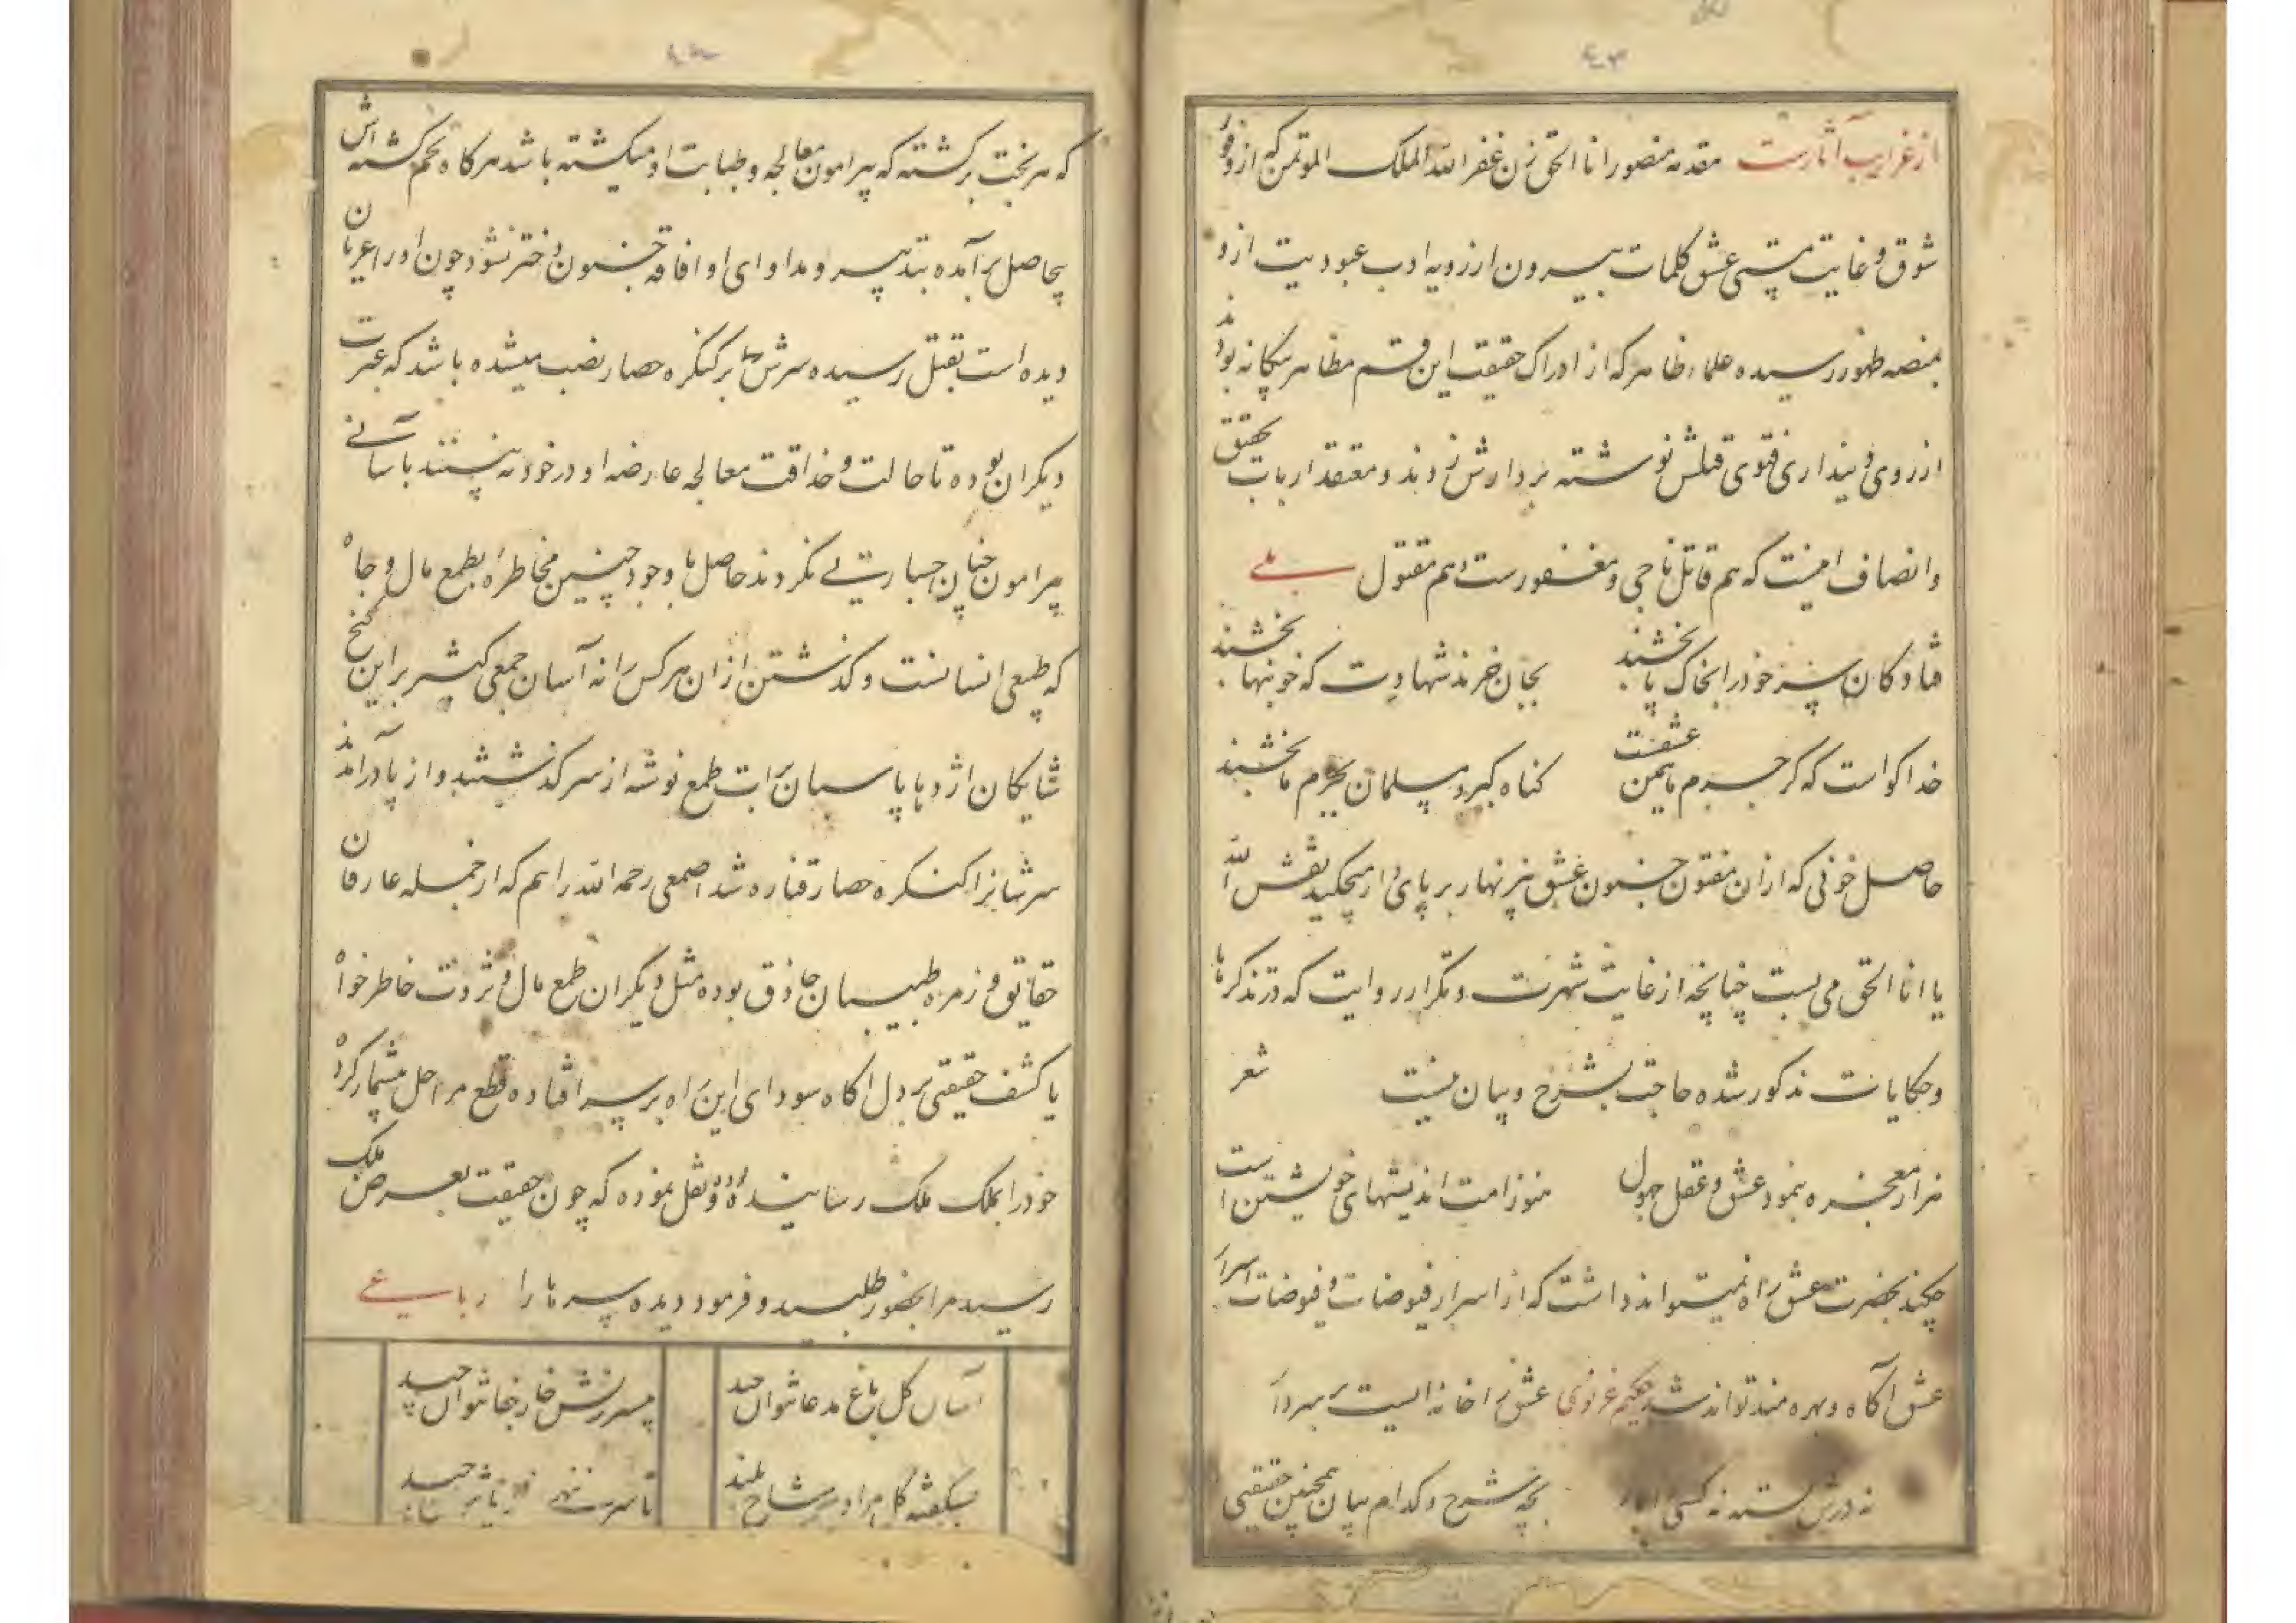 ۴۳
از غرایب آثارست مقدمه منصور انا الحق زن غفر الله الملک المؤتمن که از وفور
شوق و غایت مستی عشق کلمات بیرون از رویه ادب عبودیت ازو
بمنصه ظهور رسیده علماء ظاهر که از ادراک حقیقت این قسم مظاهر بیکانه بودند
از روی دینداری فتوی قتلش نوشته بردارش زدند و معتقد ارباب تحقیق
و انصاف اینست که هم قاتل ناجی و مغفورست هم مقتول بلے
فتادکان سر خود را بخاک پا بخشند بجان خرند شهادت که خونبها بخشند
خدا کواست که کر جرم ما همین عشقست کناه کبر و مسلمان بجرم ما بخشند
حاصل خونی که ازان مفتون جنون عشق بر پای دار میچکید نقش الله
یا انا الحق می بست چنانچه از غایت شهرت و تکرار روایت که در تذکرها
و حکایات مذکور شده حاجت بشرح و بیان نیست شعر
هزار معجزه بنمود عشق و عقل جهول هنوز امت اندیشهای خویشتن است
بحضرت عشق راه نمیتواند داشت که از اسرار فیوضات و فیوضات اسرار
عشق آکاه و بهره مند تواند شد حکیم غزنوی عشق را خانه ایست
نه درش بسته نه کسی بچه شرح و کدام بیان همچنین حقیقتی
که هر بخت برکشته که پیرامون معالجه و طبابت او میکشته باشد هرکاه تخم کشته اش
بیحاصل برآمده بتدبیر و مداوای او افاقه جنون دختر نشود چون او را عریان
دیده است بقتل رسیده سرش بر کنکره حصار نصب میشده باشد که عبرت
دیکران بوده تا حالت و حذاقت معالجه عارضه او در خود نه بینند بآسانے
پیرامون چنان جسارتے نکردند حاصل با وجود چنین مخاطره بطمع مال و جاه
که طبعی انسانست و کذشتن ازان هر کس را نه آسان جمعی کثیر بر این کنج
شایکان اژدها پاسبان رایت طمع نوشه از سر کذشتند و از پا درآمدند
سرشانرا کنکره حصار قناره شد اصمعی رحمه الله را هم که از جمله عارفان
حقایق و زمره طبیبان حاذق بوده مثل دیکران طمع مال و ثروت خاطرخواه
یا کشف حقیقتی بر دل آکاه سودای این راه بر سر افتاده قطع مراحل بیشمار کرده
خود را بملک ملک رسانیده و نقل نموده که چون حقیقت بعرض ملک
رسید مرا بحضور طلبید و فرمود دیده سرها را رباعے
آسان کل باغ مدعا نتوان چید بی سرزنش خار جفا نتوان چید
بشکفته کل مراد بر شاخ بلند تا سر ننهی